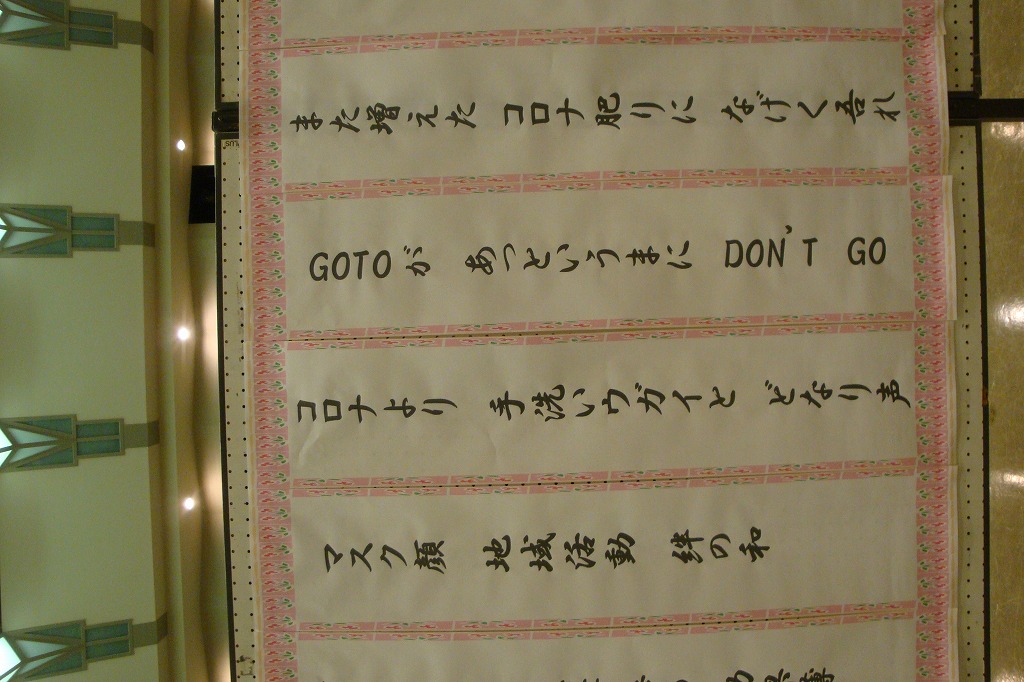 また増えた コロナ肥りに なげく吾れ
GOTOが あっというまに DON'T GO
コロナより 手洗いウガイと どなり声
マスク顔 地域活動 絆の和